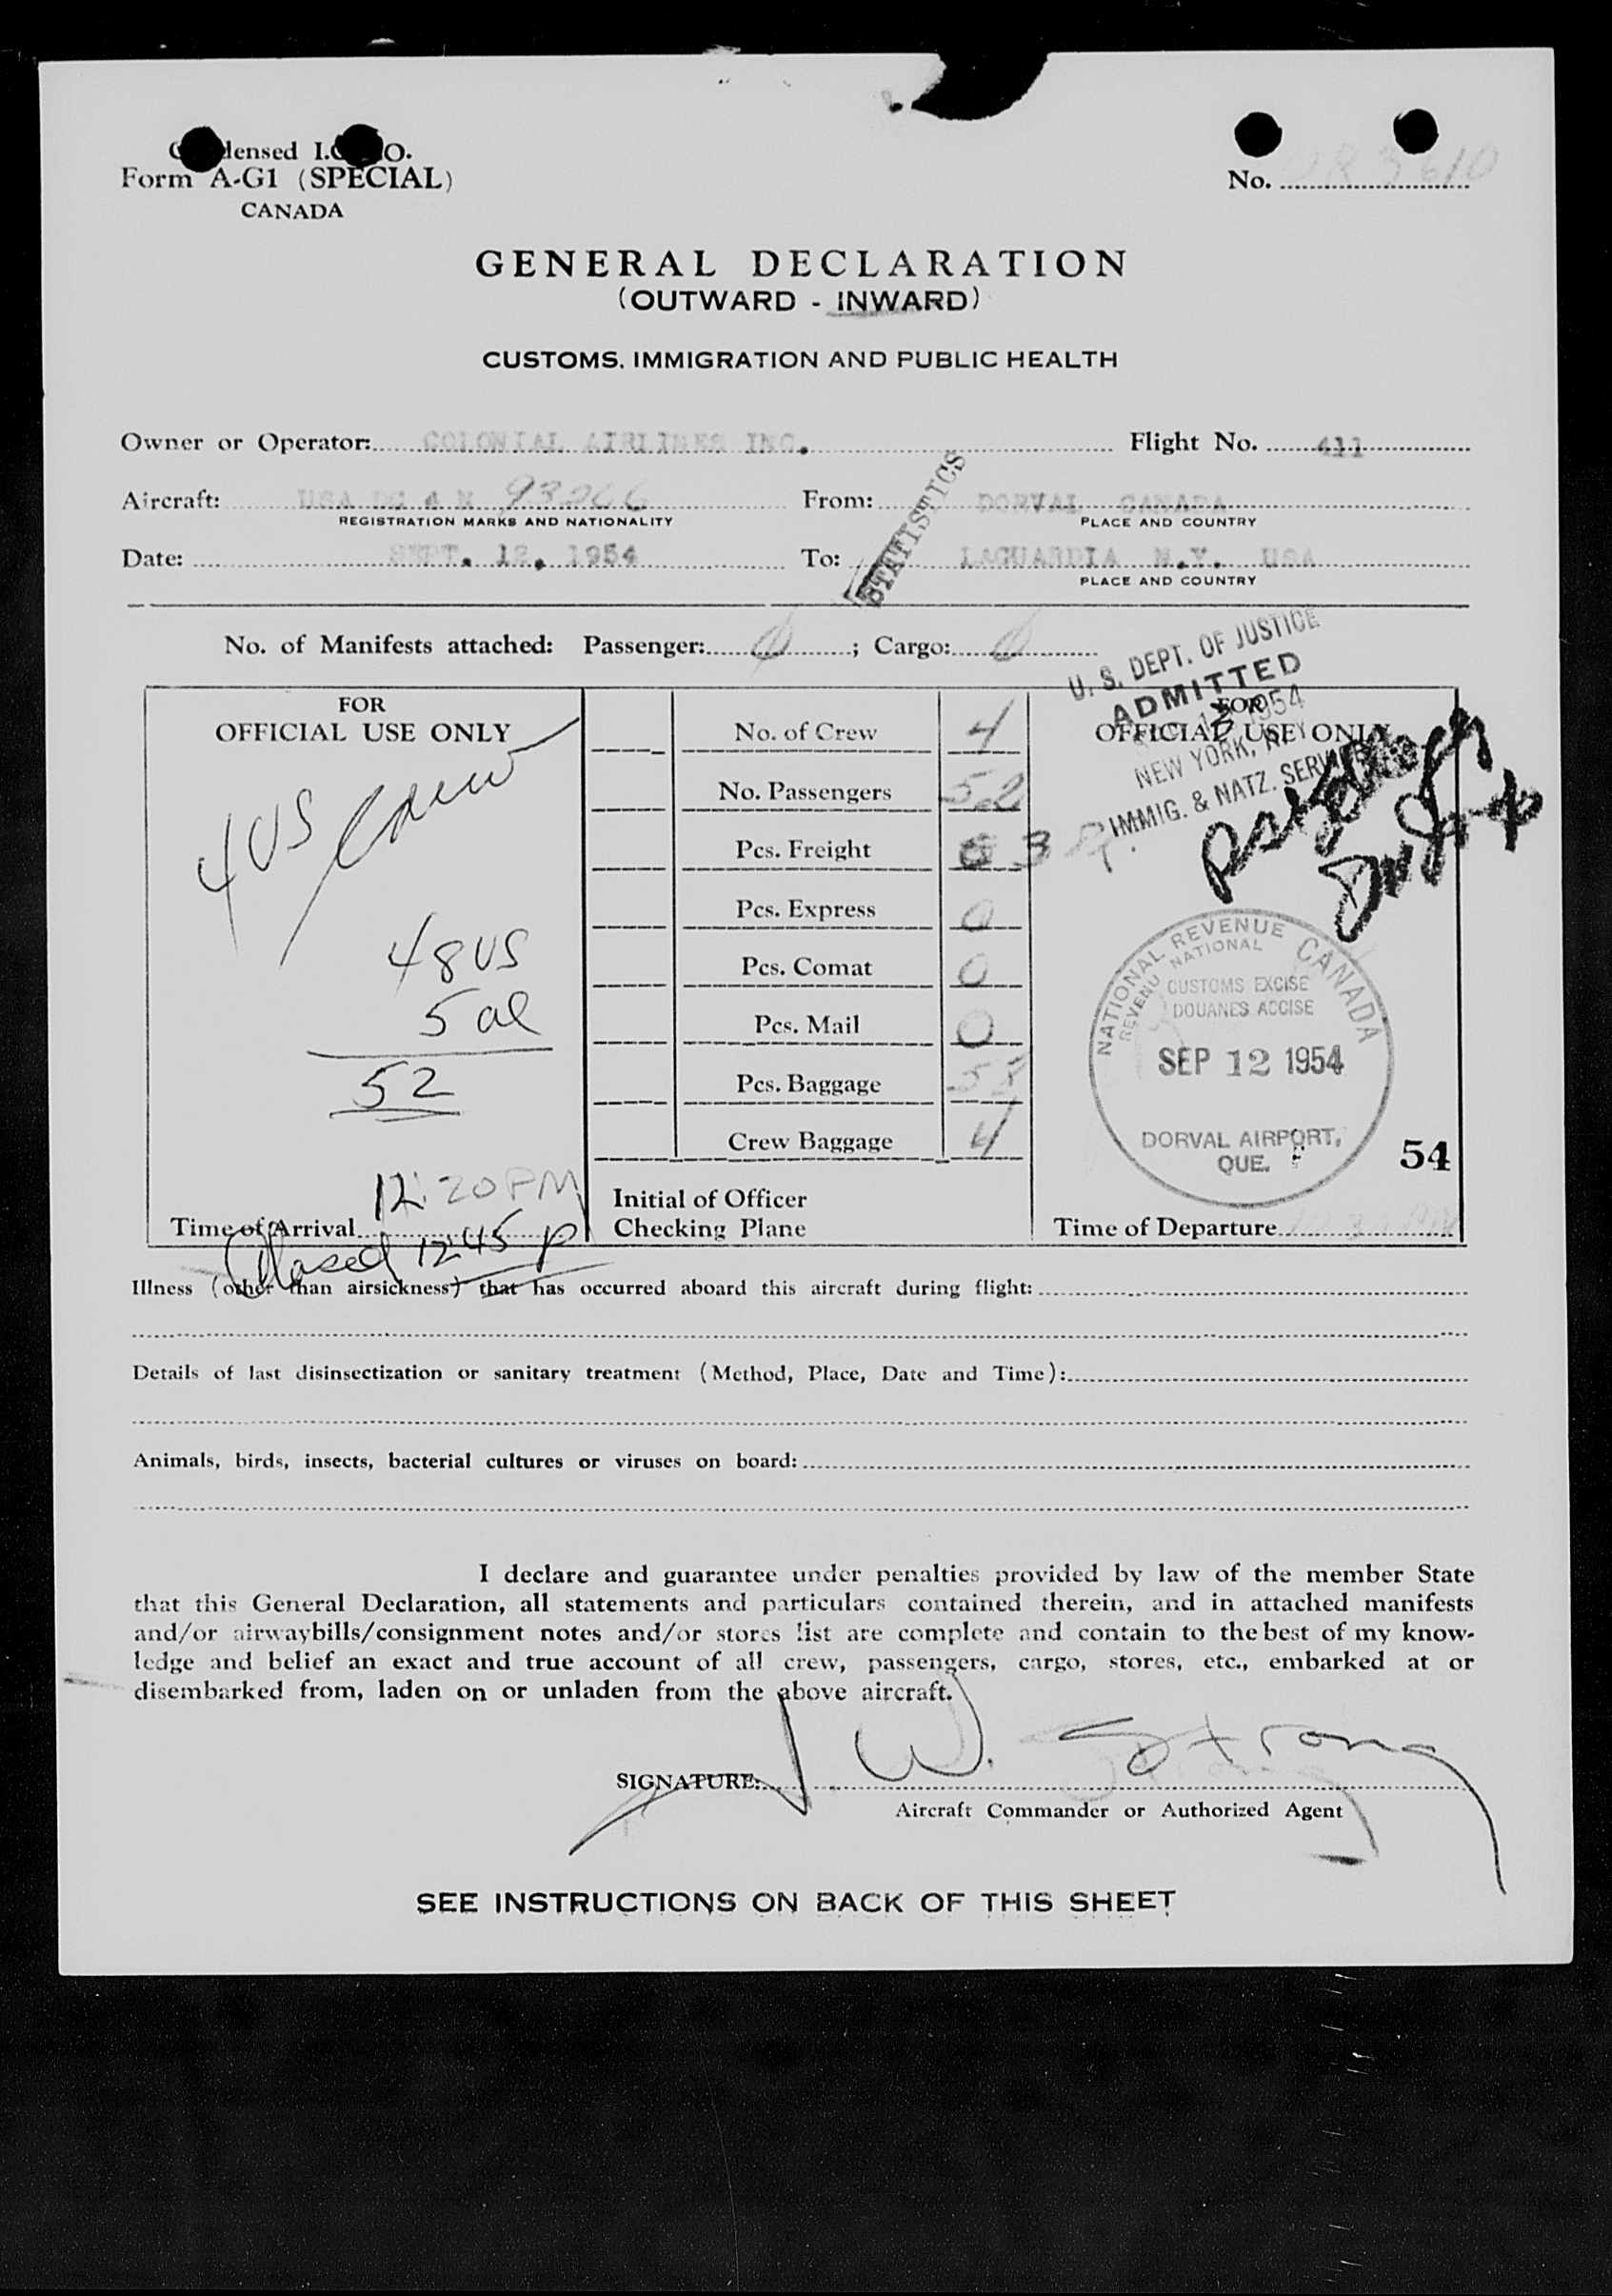 densed I. O.
Form A-G1 (SPECIAL)
CANADA
No. 3610
GENERAL DECLARATION
(OUTWARD - INWARD)
CUSTOMS, IMMIGRATION AND PUBLIC HEALTH
Owner or Operator: COLONIAL AIRLINES INC. Flight No. 411
Aircraft: USA DC 4 N From: DORVAL CANADA
REGISTRATION MARKS AND NATIONALITY PLACE AND COUNTRY
Date: SEPT. 12, 1954 To: LAGUARDIA N.Y. USA
PLACE AND COUNTRY
STATISTICS
No. of Manifests attached: Passenger: ; Cargo:
U. S. DEPT. OF JUSTICE
ADMITTED
1954
NEW YORK, N.Y.
IMMIG. & NATZ. SERVICE
FOR
OFFICIAL USE ONLY
4 US Crew
48 US
5 al
52
12:20 PM
Time of Arrival
Closed 12:45 p
No. of Crew 4
No. Passengers 52
Pcs. Freight 3
Pcs. Express 0
Pcs. Comat 0
Pcs. Mail 0
Pcs. Baggage
Crew Baggage 4
Initial of Officer
Checking Plane
FOR
OFFICIAL USE ONLY
NATIONAL REVENUE CANADA
REVENU NATIONAL
CUSTOMS EXCISE
DOUANES ACCISE
SEP 12 1954
DORVAL AIRPORT,
QUE.
54
Time of Departure
Illness (other than airsickness) that has occurred aboard this aircraft during flight:
Details of last disinsectization or sanitary treatment (Method, Place, Date and Time):
Animals, birds, insects, bacterial cultures or viruses on board:
I declare and guarantee under penalties provided by law of the member State
that this General Declaration, all statements and particulars contained therein, and in attached manifests
and/or airwaybills/consignment notes and/or stores list are complete and contain to the best of my know-
ledge and belief an exact and true account of all crew, passengers, cargo, stores, etc., embarked at or
disembarked from, laden on or unladen from the above aircraft.
SIGNATURE: W. Strong
Aircraft Commander or Authorized Agent
SEE INSTRUCTIONS ON BACK OF THIS SHEET